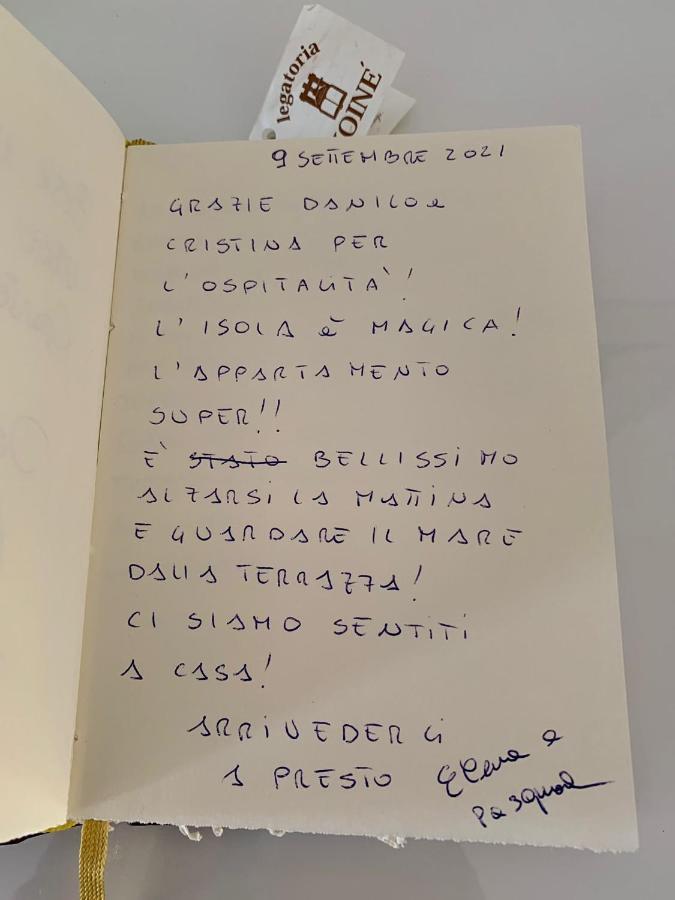 legatoria
9 SETTEMBRE 2021
GRAZIE DANILO e
CRISTINA PER
L'OSPITALITÀ!
L'ISOLA è MAGICA!
L'APPARTAMENTO
SUPER!!
È STATO BELLISSIMO
ALZARSI LA MATTINA
E GUARDARE IL MARE
DALLA TERRAZZA!
CI SIAMO SENTITI
A CASA!
ARRIVEDERCI
A PRESTO
Elena e
Pasquale